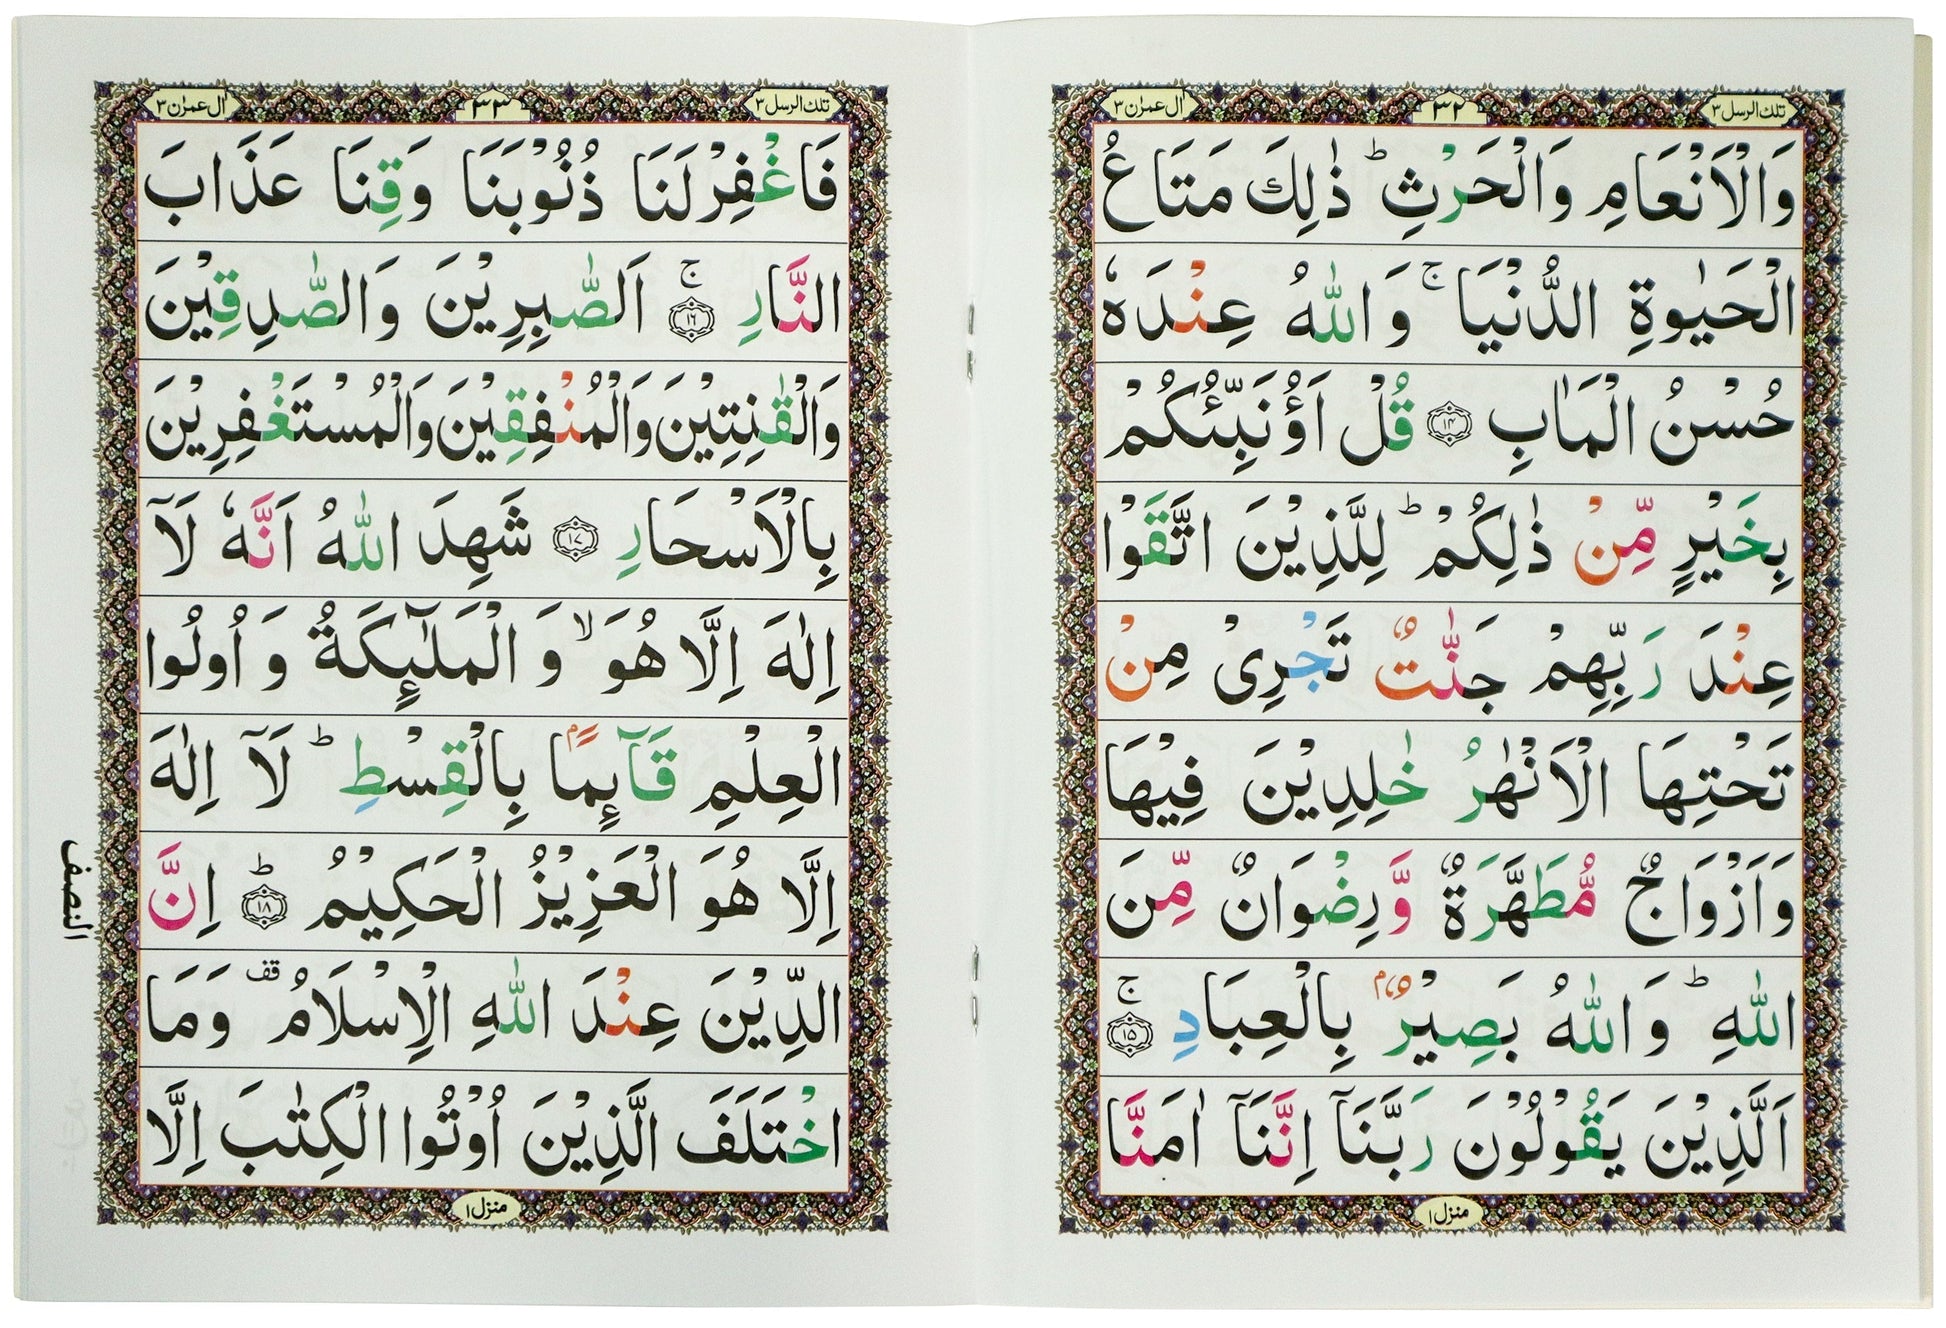 تلك الرسل ٣
٣٢
اٰل عمرٰن ٣
وَالْاَنْعَامِ وَالْحَرْثِ ؕ ذٰلِكَ مَتَاعُ
الْحَيٰوةِ الدُّنْيَا ۚ وَاللّٰهُ عِنْدَهٗ
حُسْنُ الْمَاٰبِ ﴿۱۴﴾ قُلْ اَؤُنَبِّئُكُمْ
بِخَيْرٍ مِّنْ ذٰلِكُمْ ؕ لِلَّذِيْنَ اتَّقَوْا
عِنْدَ رَبِّهِمْ جَنّٰتٌ تَجْرِىْ مِنْ
تَحْتِهَا الْاَنْهٰرُ خٰلِدِيْنَ فِيْهَا
وَاَزْوَاجٌ مُّطَهَّرَةٌ وَّرِضْوَانٌ مِّنَ
اللّٰهِ ؕ وَاللّٰهُ بَصِيْرٌۢ بِالْعِبَادِ ﴿۱۵﴾ ۚ
اَلَّذِيْنَ يَقُوْلُوْنَ رَبَّنَاۤ اِنَّنَاۤ اٰمَنَّا
منزل ١
تلك الرسل ٣
٣٣
اٰل عمرٰن ٣
فَاغْفِرْ لَنَا ذُنُوْبَنَا وَقِنَا عَذَابَ
النَّارِ ﴿۱۶﴾ ۚ اَلصّٰبِرِيْنَ وَالصّٰدِقِيْنَ
وَالْقٰنِتِيْنَ وَالْمُنْفِقِيْنَ وَالْمُسْتَغْفِرِيْنَ
بِالْاَسْحَارِ ﴿۱۷﴾ شَهِدَ اللّٰهُ اَنَّهٗ لَاۤ
اِلٰهَ اِلَّا هُوَ ۙ وَ الْمَلٰٓئِكَةُ وَ اُولُوا
الْعِلْمِ قَآئِمًۢا بِالْقِسْطِ ؕ لَاۤ اِلٰهَ
اِلَّا هُوَ الْعَزِيْزُ الْحَكِيْمُ ﴿۱۸﴾ ؕ اِنَّ
الدِّيْنَ عِنْدَ اللّٰهِ الْاِسْلَامُ قف وَمَا
اخْتَلَفَ الَّذِيْنَ اُوْتُوا الْكِتٰبَ اِلَّا
النصف
منزل ١